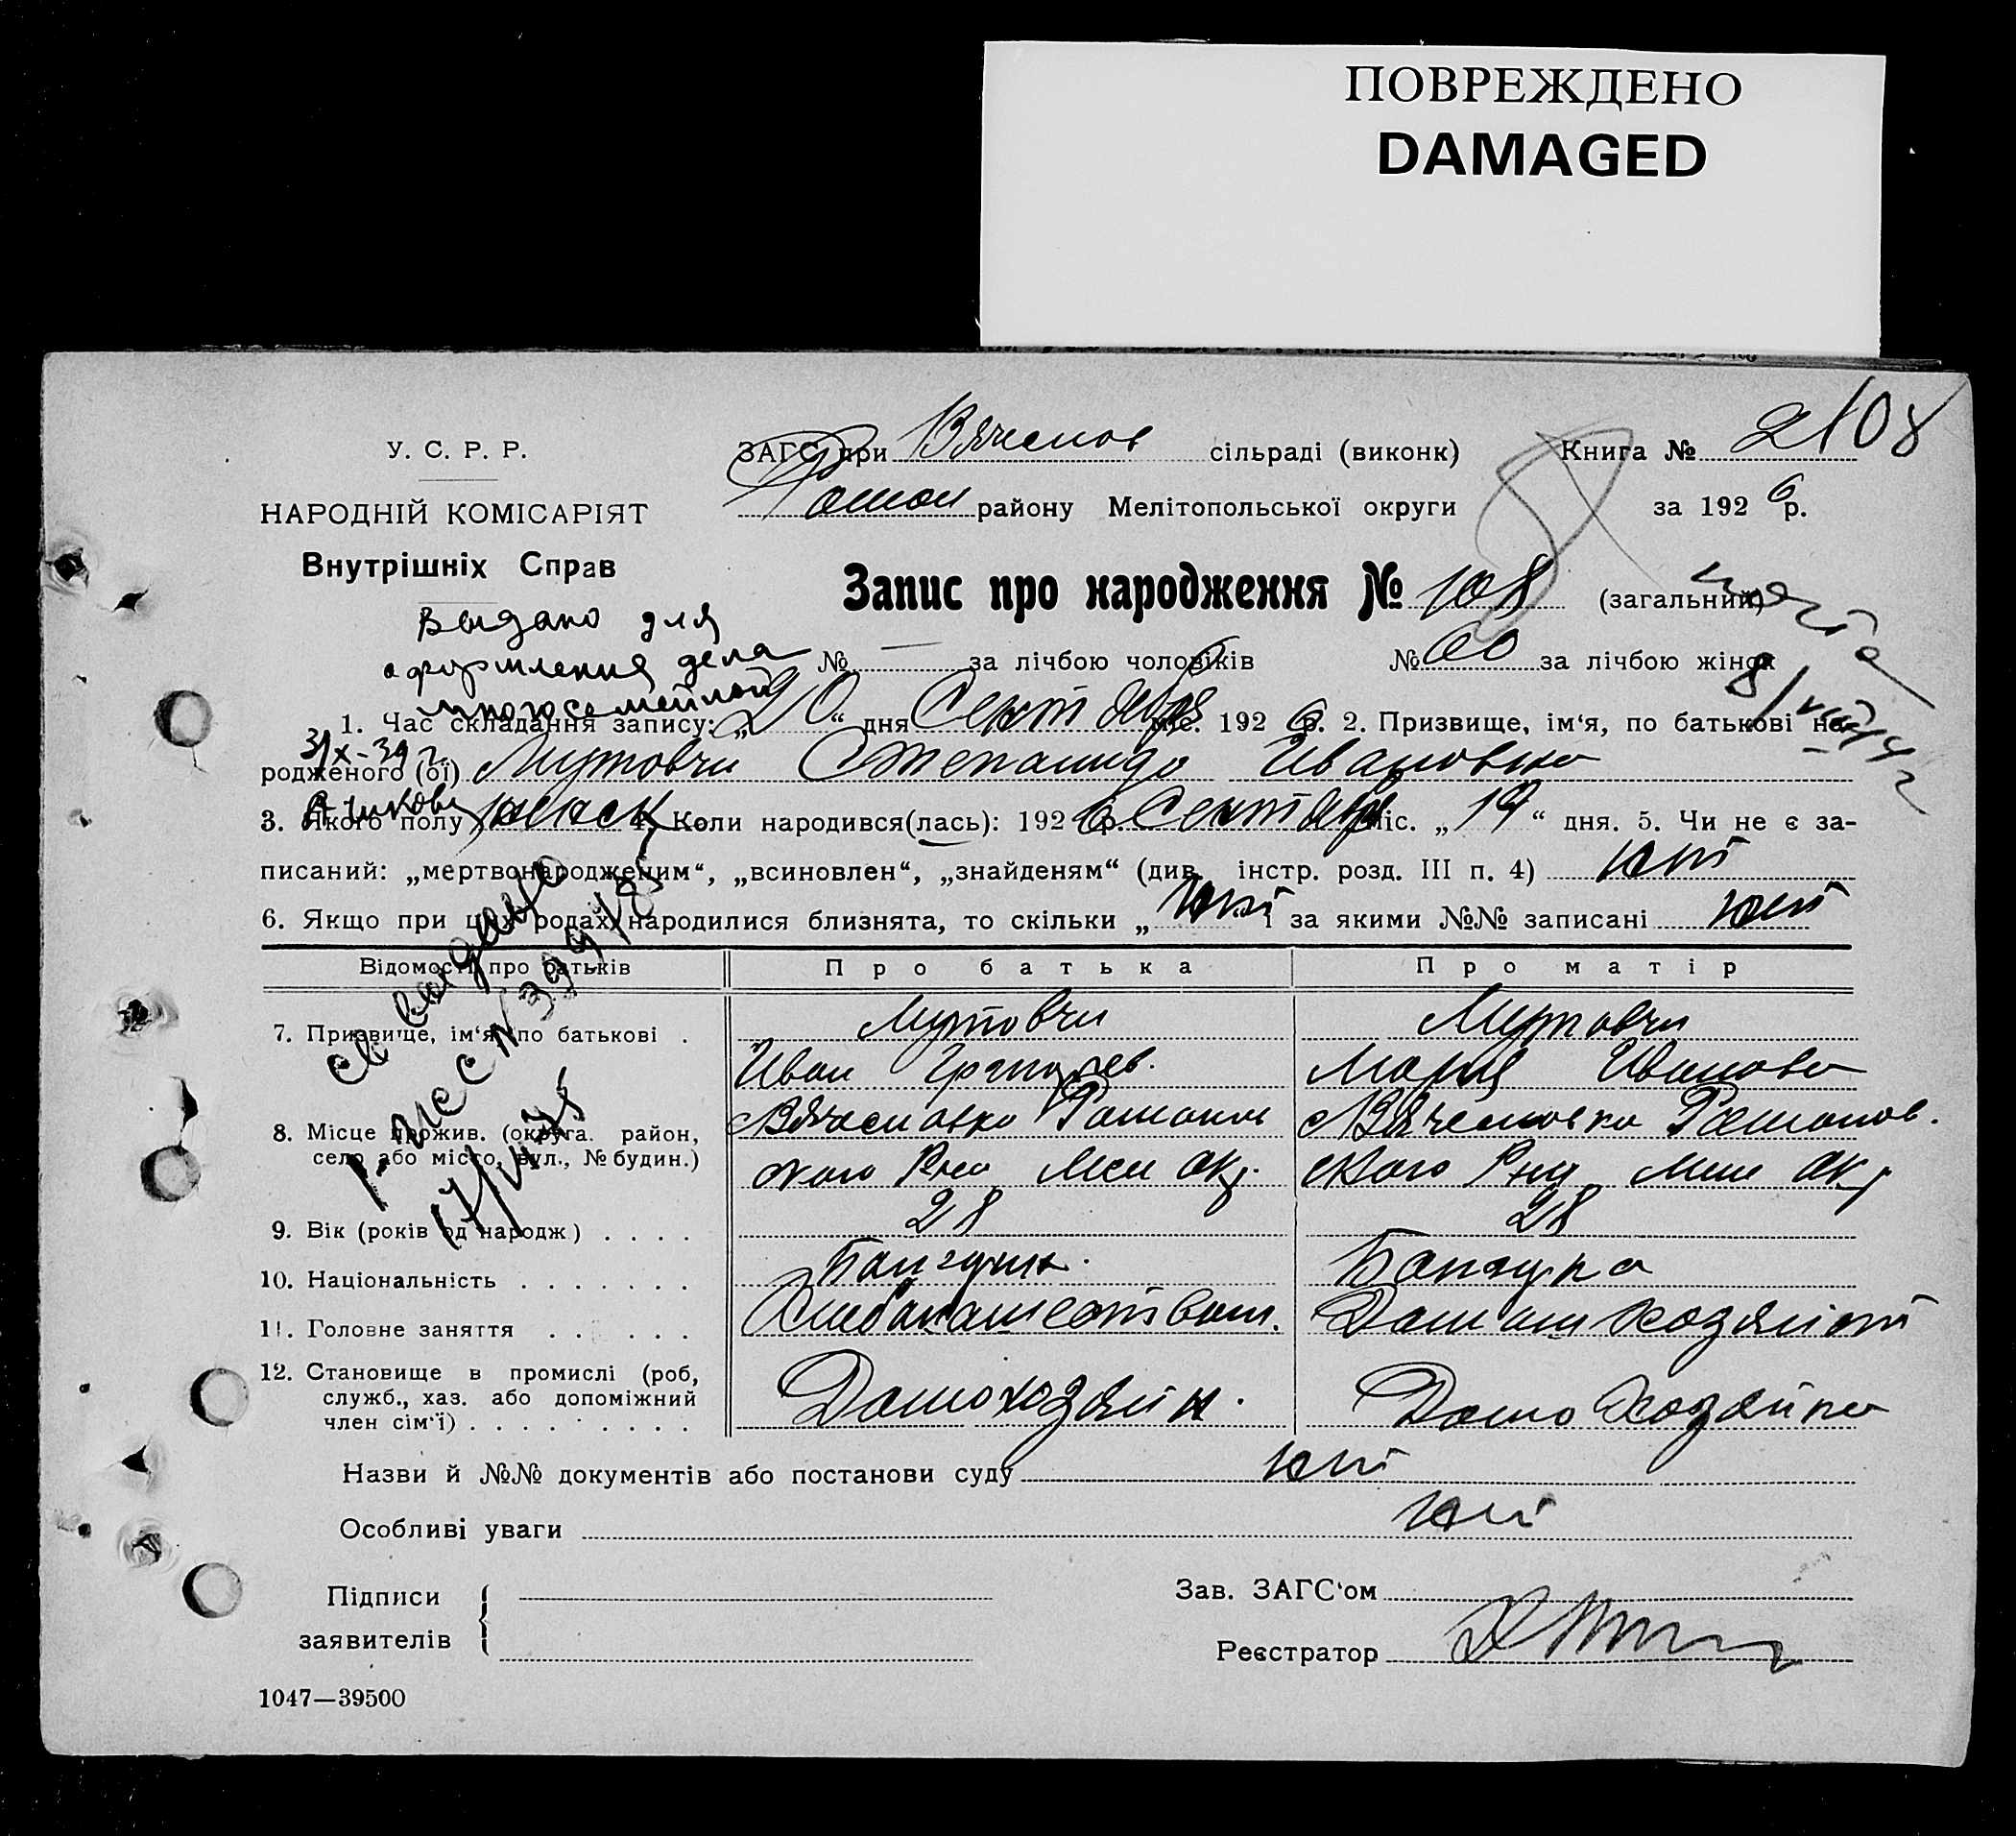 ПОВРЕЖДЕНО
DAMAGED
У. С. Р. Р.
НАРОДНІЙ КОМІСАРІЯТ
Внутрішніх Справ
ЗАГС при Вячеслов сільраді (виконк) Книга № 2 108
Роман району Мелітопольської округи за 1926 р.
Запис про народження № 108 (загальний)
Выдано для
оформления дела
многосемейной
3/X-39 г.
№ — за лічбою чоловіків № 60 за лічбою жінок
1. Час складання запису: „20“ дня Сентября міс. 1926 р. 2. Призвище, ім‘я, по батькові на-
родженого (ої) Мутовчи Степанида Ивановна
3. Якого полу женск 4. Коли народився(лась): 1926 р. Сентября міс. „19“ дня. 5. Чи не є за-
писаний: „мертвонародженим“, „всиновлен“, „знайденям“ (див. інстр. розд. III п. 4) нет
6. Якщо при цих родах народилися близнята, то скільки „нет“ і за якими №№ записані нет
св выдано
Відомості про батьків Про батька Про матір
7. Призвище, ім‘я, по батькові . Мутовчи Мутовчи
Иван Мария Иванова
8. Місце прожив. (округа. район, Вячеславка Романов Вячеславка Романов.
село або місто, вул., № будин.) ского Рна Мел окр. ского Рна Мел окр
9. Вік (років од народж) . . . . 28 28
10. Національність . . . . . . . Болгарин. Болгарка
11. Головне заняття . . . . . . Хлебопашество Домаш хозяйств
12. Становище в промислі (роб,
служб., хаз. або допоміжний
член сім‘ї) . . . . . . . . . Домохозяин. Домохозяйка
Назви й №№ документів або постанови суду нет
Особливі уваги нет
Підписи
заявителів
Зав. ЗАГС‘ом
Реєстратор
1047—39500